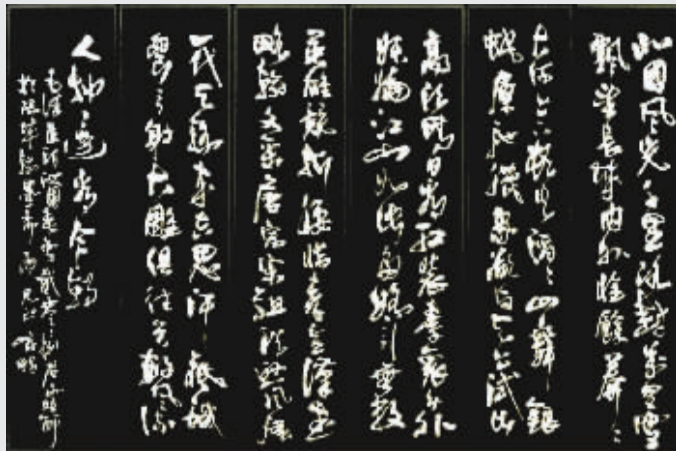 北国风光千里冰封万里雪
飘望长城内外惟馀莽々
大河上下顿失滔々山舞银
蛇原驰蜡象欲与天公试比
高须晴日看红装素裹分外
妖娆江山如此多娇引无数
英雄竞折腰惜秦皇汉武
略输文采唐宗宋祖稍逊风骚
一代天骄成吉思汗只识
弯弓射大雕俱往矣数风流
人物还看今朝
毛泽东词沁园春雪